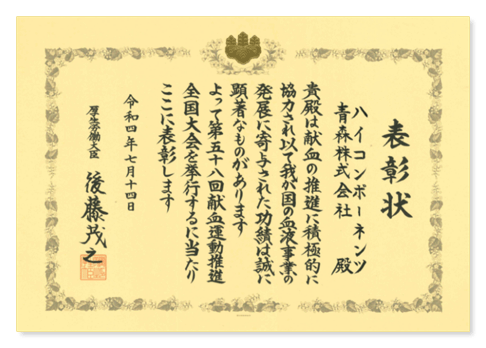 表彰状
ハイコンポーネンツ
青森株式会社 殿
貴殿は献血の推進に積極的に
協力され以て我が国の血液事業の
発展に寄与された功績は誠に
顕著なものがあります
よって第五十八回献血運動推進
全国大会を挙行するに当たり
ここに表彰します
令和四年七月十四日
厚生労働大臣 後藤茂之